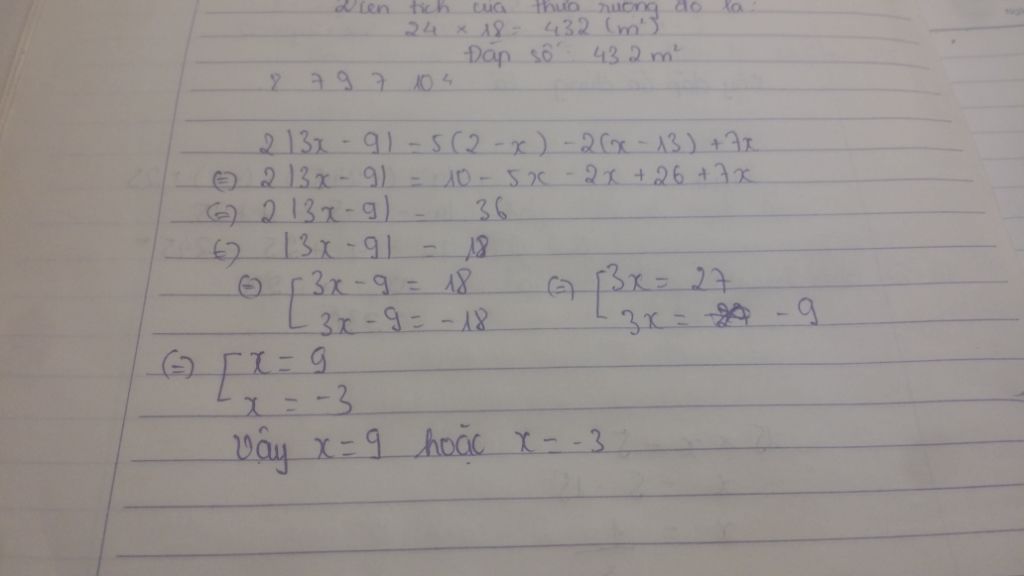 Diện tích của thửa ruộng đó là:
24 × 18 = 432 (m²)
Đáp số: 432 m²
8 7 9 7 10⁴
2|3x - 9| = 5(2 - x) - 2(x - 13) + 7x
(=) 2|3x - 9| = 10 - 5x - 2x + 26 + 7x
(=) 2|3x - 9| = 36
(=) |3x - 9| = 18
(=) [ 3x - 9 = 18 (=) [ 3x = 27
3x - 9 = -18 3x = - 9
(=) [ x = 9
x = -3
Vậy x = 9 hoặc x = -3